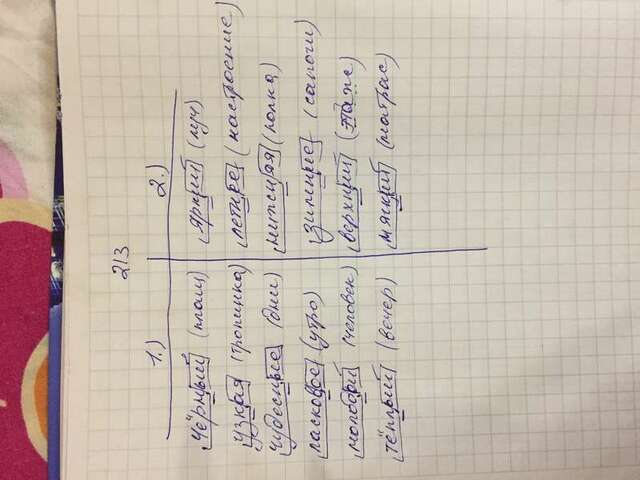 213
1.) 2.)
Чёрный (плащ) яркий (луч)
узкая (тропинка) летнее (настроение)
чудесные (дни) нижняя (полка)
ласковое (утро) зимние (сапоги)
молодой (человек) верхний
тёплый (вечер) мягкий (матрас)